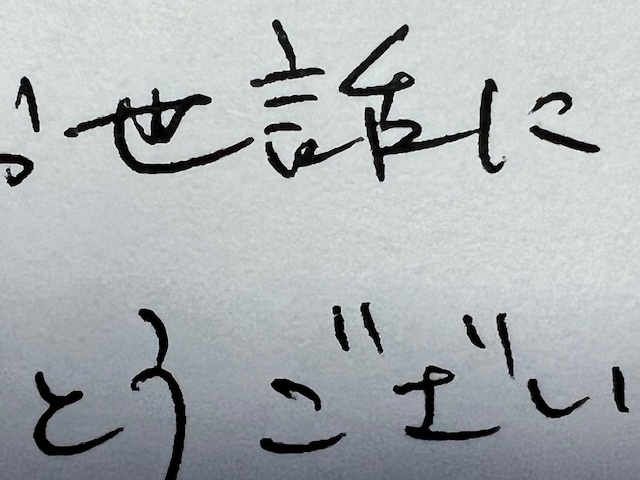 世話に
とうござい